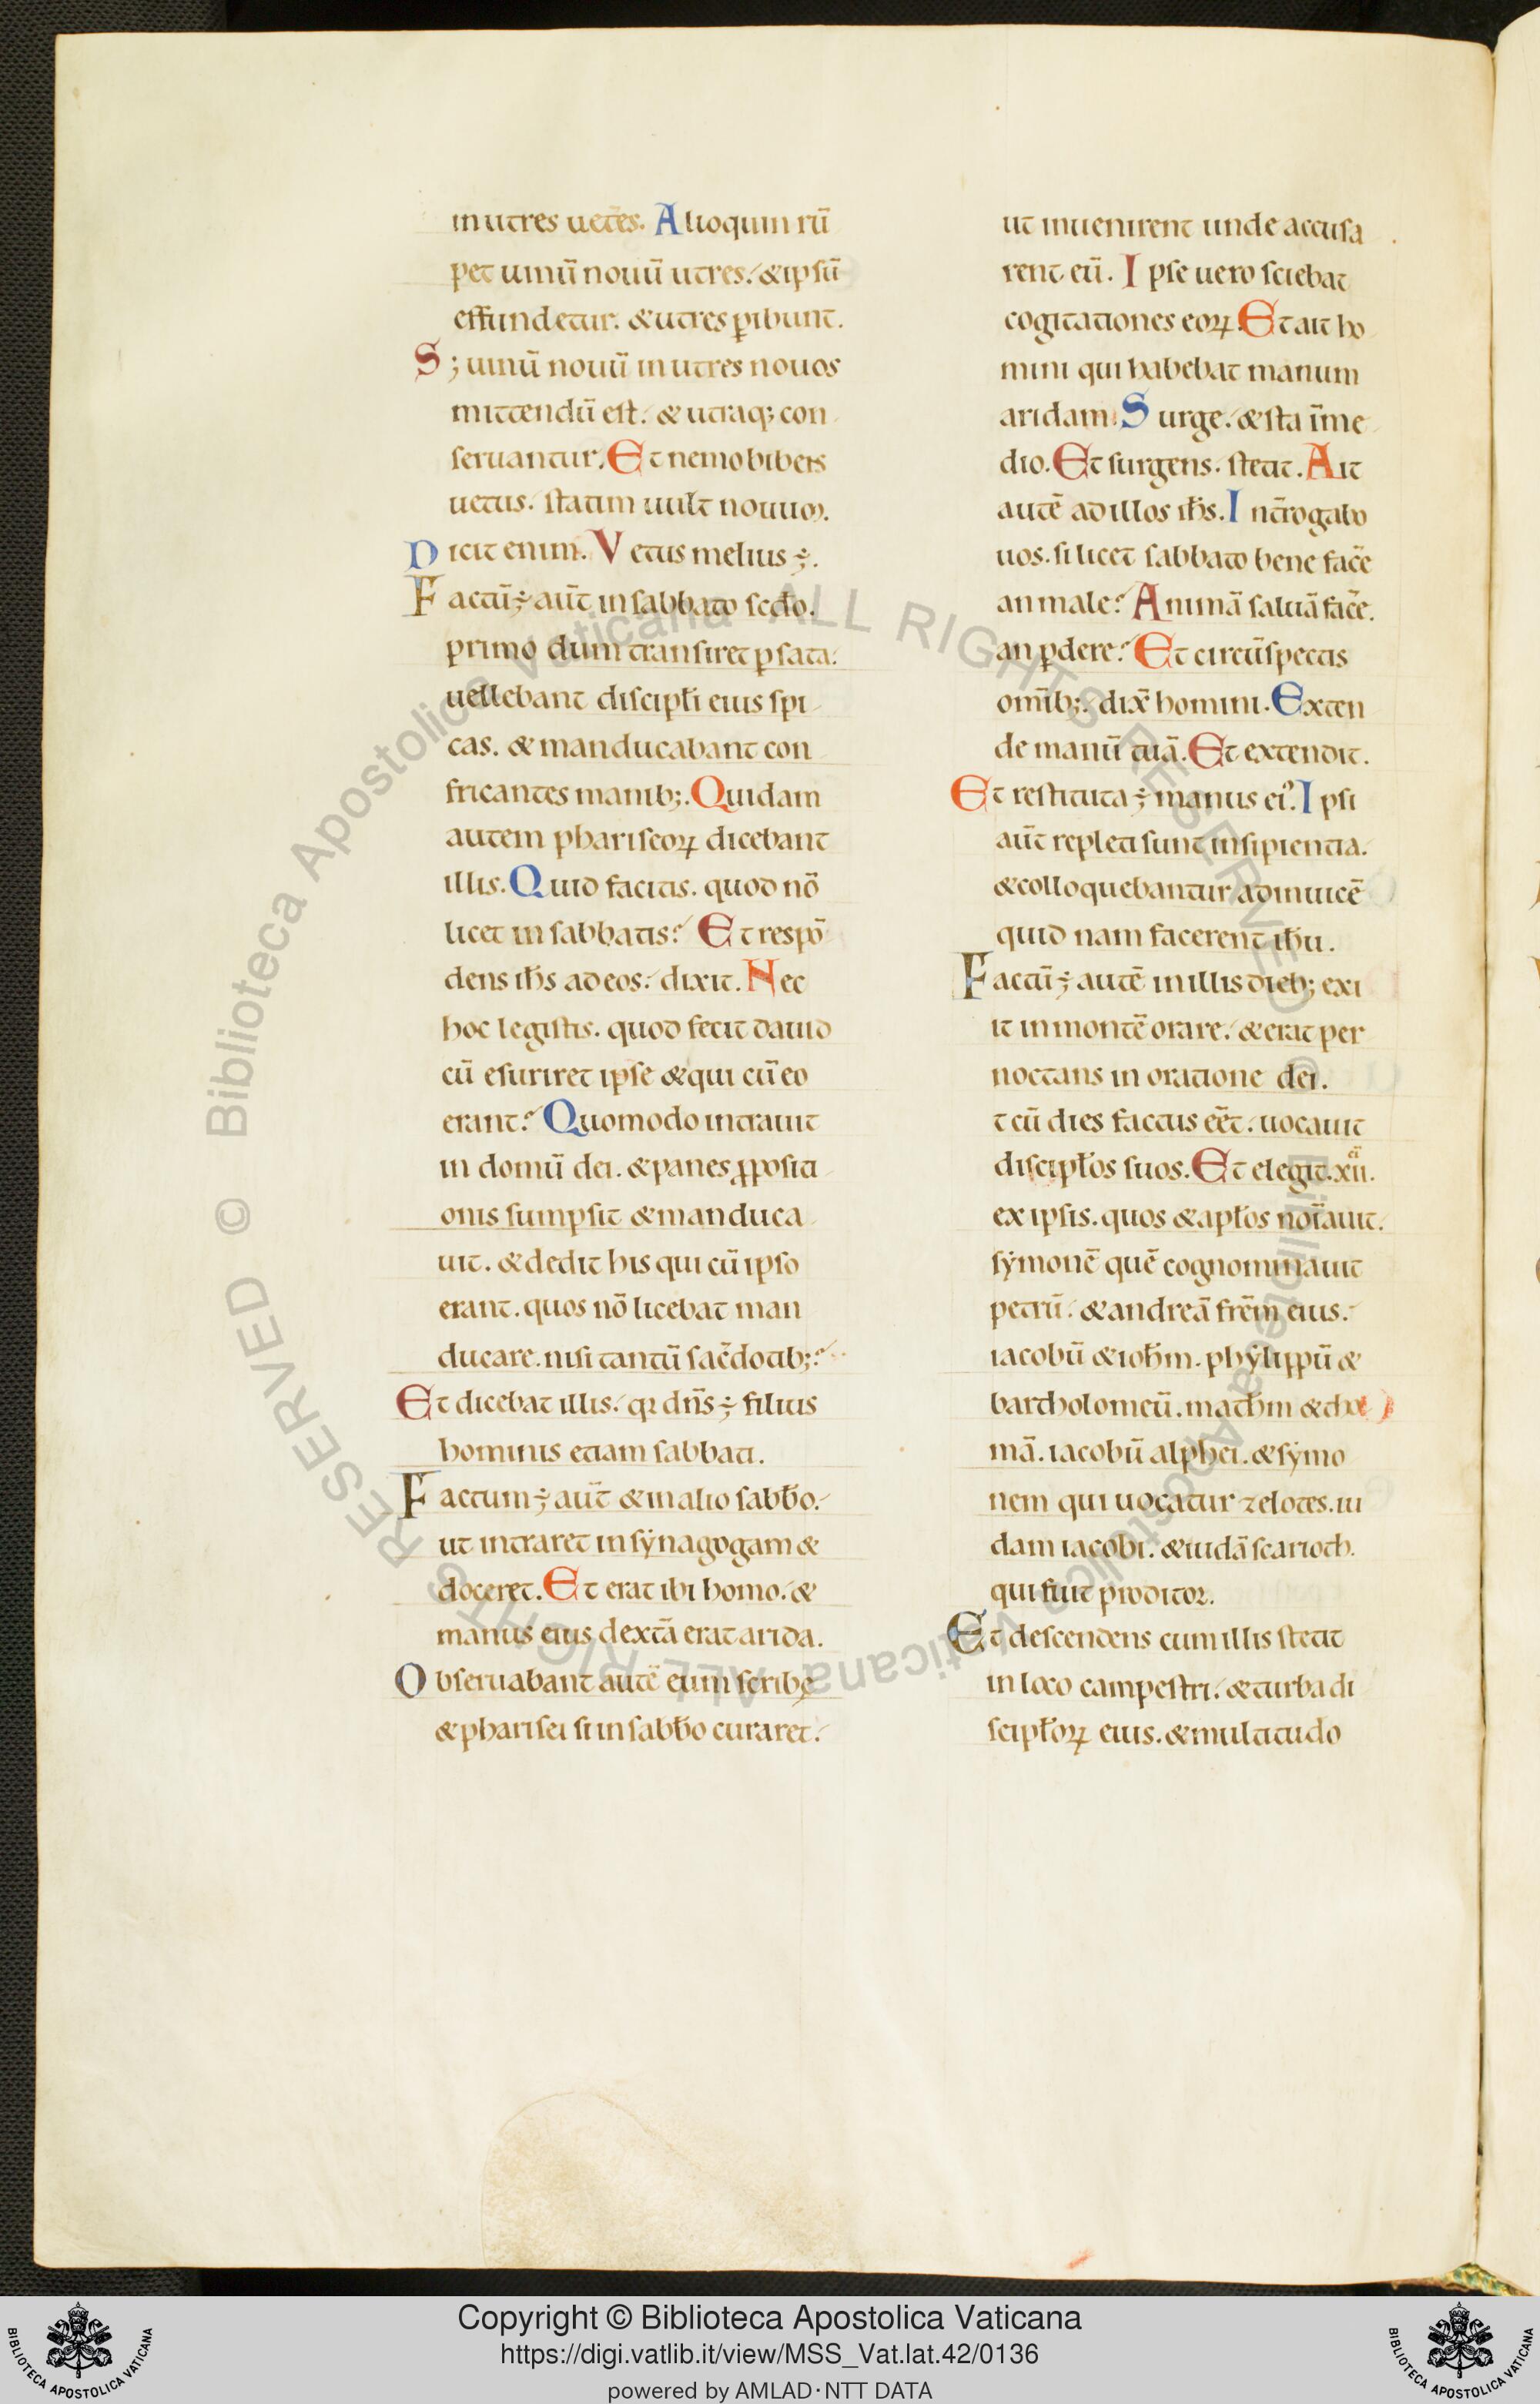 in utres uet̄es. Alioquin rū
pet uinū nouū utres. & ipsū
effundetur. & utres ꝑibunt.
S; uinū nouū in utres nouos
mittendū est. & utraq; con
seruantur. Et nemo bibens
uetus. statim uult nouum.
Dicit enim. Vetus melius ÷.
Factū ÷ aūt in sabbato sc̄do.
primo dum transiret ꝑ sata.
uellebant discipl̄i eius spi
cas. & manducabant con
fricantes manib;. Quidam
autem phariseoꝝ dicebant
illis. Quid facitis. quod nō
licet in sabbatis? Et respō
dens ih̄s ad eos. dixit. Nec
hoc legistis. quod fecit dauid
cū esuriret ipse & qui cū eo
erant? Quomodo intrauit
in domū dei. & panes ꝓpositi
onis sumpsit & manduca
uit. & dedit his qui cū ipso
erant. quos nō licebat man
ducare. nisi tantū sac̄dotib;?
Et dicebat illis. qı dn̄s ÷ filius
hominis etiam sabbati.
Factum ÷ aūt & in alio sabb̄o.
ut intraret in sẏnagogam &
doceret. Et erat ibi homo. &
manus eius dext̄a erat arida.
Obseruabant autē eum scribę
& pharisei si in sabb̄o curaret.
ut inuenirent unde accusa
rent eū. Ipse uero sciebat
cogitationes eoꝝ. Et ait ho
mini qui habebat manum
aridam. Surge. & sta ī me
dio. Et surgens. stetit. Ait
autē ad illos ih̄s. Int̄rogabo
uos. si licet sabbato bene fac̄e
an male? Animā saluā fac̄e.
an ꝑdere? Et circūspectis
om̄ib;. dix̄ homini. Exten
de manū tuā. Et extendit.
Et restituta ÷ manus eiꝰ. Ipsi
aūt repleti sunt insipientia.
& colloquebantur adinuicē
quid nam facerent ih̄u.
Factū ÷ autē in illis dieb; exi
it in montē orare. & erat per
noctans in oratione dei.
t cū dies factus eēt. uocauit
discipl̄os suos. Et elegit. xii.
ex ipsis. quos & apl̄os noīauit.
sẏmonē quē cognominauit
petrū. & andreā fr̄em eius.
iacobū & ioh̄m. phẏlippū &
bartholomeū. math̄m & tho
mā. iacobū alphei. & sẏmo
nem qui uocatur zelotes. iu
dam iacobi. & iudā scarioth.
qui fuit proditor.
Et descendens cum illis stetit
in loco campestri. & turba di
scipl̄oꝝ eius. & multitudo
Copyright © Biblioteca Apostolica Vaticana
https://digi.vatlib.it/view/MSS_Vat.lat.42/0136
powered by AMLAD·NTT DATA
BIBLIOTECA APOSTOLICA VATICANA
BIBLIOTECA APOSTOLICA VATICANA
© Biblioteca Apostolica Vaticana ALL RIGHTS RESERVED
© Biblioteca Apostolica Vaticana ALL RIGHTS RESERVED